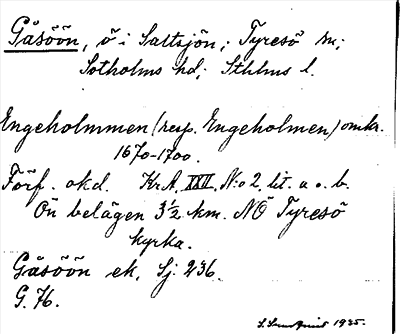 Gåsöön, ö i Saltsjön; Tyresö sn;
Sotholms hd; Sthlms l.
Engeholmmen (resp. Engeholmen) omkr.
1670-1700.
Förf. okd. Kr.A. XXII. N:o 2, lit. a o. b.
Ön belägen 3½ km. NÖ Tyresö
kyrka.
Gåsöön ek. Sj. 236.
G. 76.
1935.